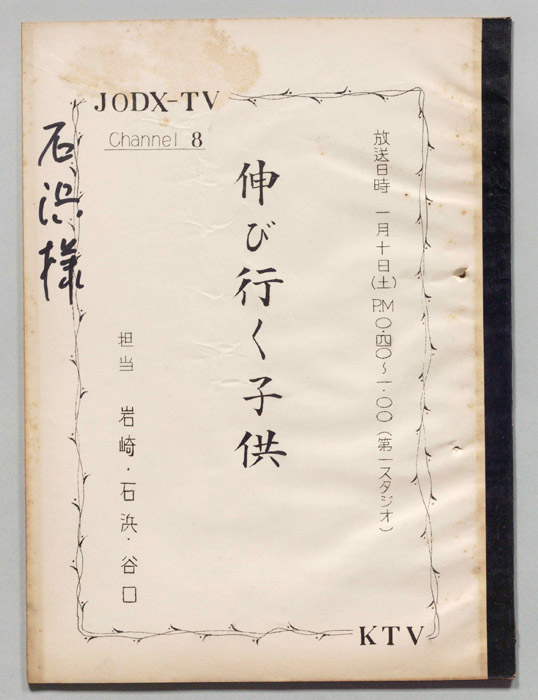 JODX-TV
Channel 8
放送日時 一月十日(土) P.M 〇.四〇〜一.〇〇(第一スタジオ)
伸び行く子供
担当 岩崎・石浜・谷口
石浜様
KTV